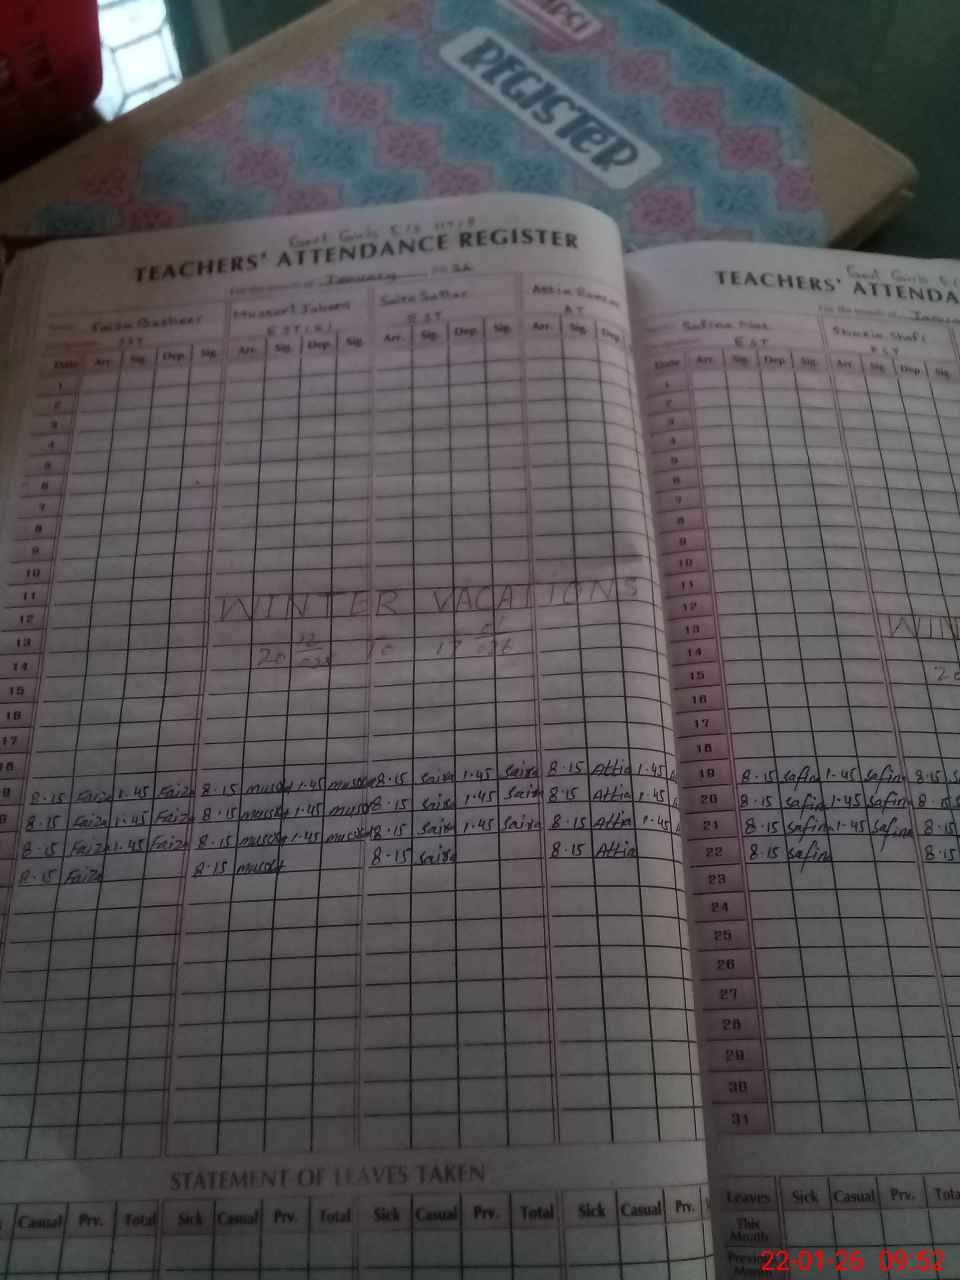 REGISTER
TEACHERS' ATTENDANCE REGISTER
For the month of January 2026
Faiza Basheer Mussart Jabeen Saira Sattar Attia
EST EST EST AT
Date Arr. Sig. Dep. Sig. Arr. Sig. Dep. Sig. Arr. Sig. Dep. Sig. Arr. Sig. Dep.
1
2
3
4
5
6
7
8
9
10
11
WINTER VACATIONS
12
13
20 12 To 17 01
14
15
16
17
18
8.15 Faiza 1.45 Faiza 8.15 1.45 8.15 Saira 1.45 Saira 8.15 Attia 1.45
8.15 Faiza 1.45 Faiza 8.15 1.45 8.15 Saira 1.45 Saira 8.15 Attia 1.45
8.15 Faiza 1.45 Faiza 8.15 1.45 8.15 Saira 1.45 Saira 8.15 Attia 1.45
8.15 Faiza 8.15 8.15 Saira 8.15 Attia
STATEMENT OF LEAVES TAKEN
Casual Prv. Total Sick Casual Prv. Total Sick Casual Prv. Total Sick Casual Prv.
TEACHERS' ATTENDA
Safina Niaz Shazia Shafi
EST
Date Arr. Sig. Dep. Sig. Arr. Sig. Dep. Sig.
1
2
3
4
5
6
7
8
9
10
11
12
13 WIN
14
15 20
16
17
18
19 8.15 Safina 1.45 Safina 8.15
20 8.15 Safina 1.45 Safina 8.15
21 8.15 Safina 1.45 Safina 8.15
22 8.15 Safina 8.15
23
24
25
26
27
28
29
30
31
Leaves Sick Casual Prv. Tota
This Month
22-01-26 09:52